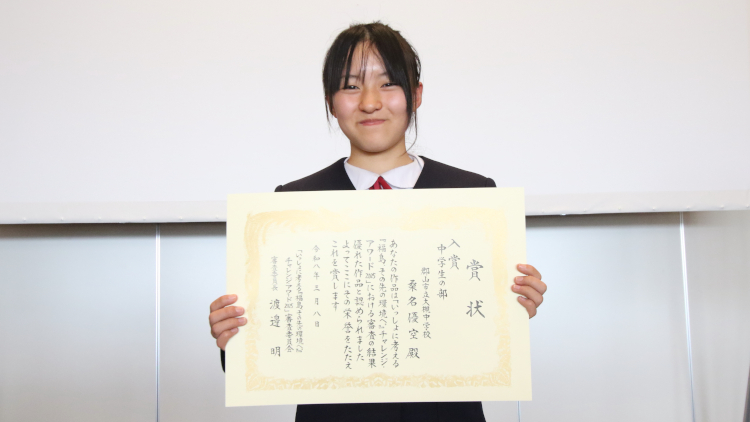 賞状
入賞
中学生の部
郡山市立大槻中学校
桑名優空 殿
あなたの作品は「いっしょに考える
「福島、その先の環境へ。」チャレンジ・
アワード2025」における審査の結果
優れた作品と認められました
よってここにその栄誉をたたえ
これを賞します
令和八年三月八日
「いっしょに考える「福島、その先の環境へ。」
チャレンジ・アワード2025」審査委員会
審査委員会 渡邉 明